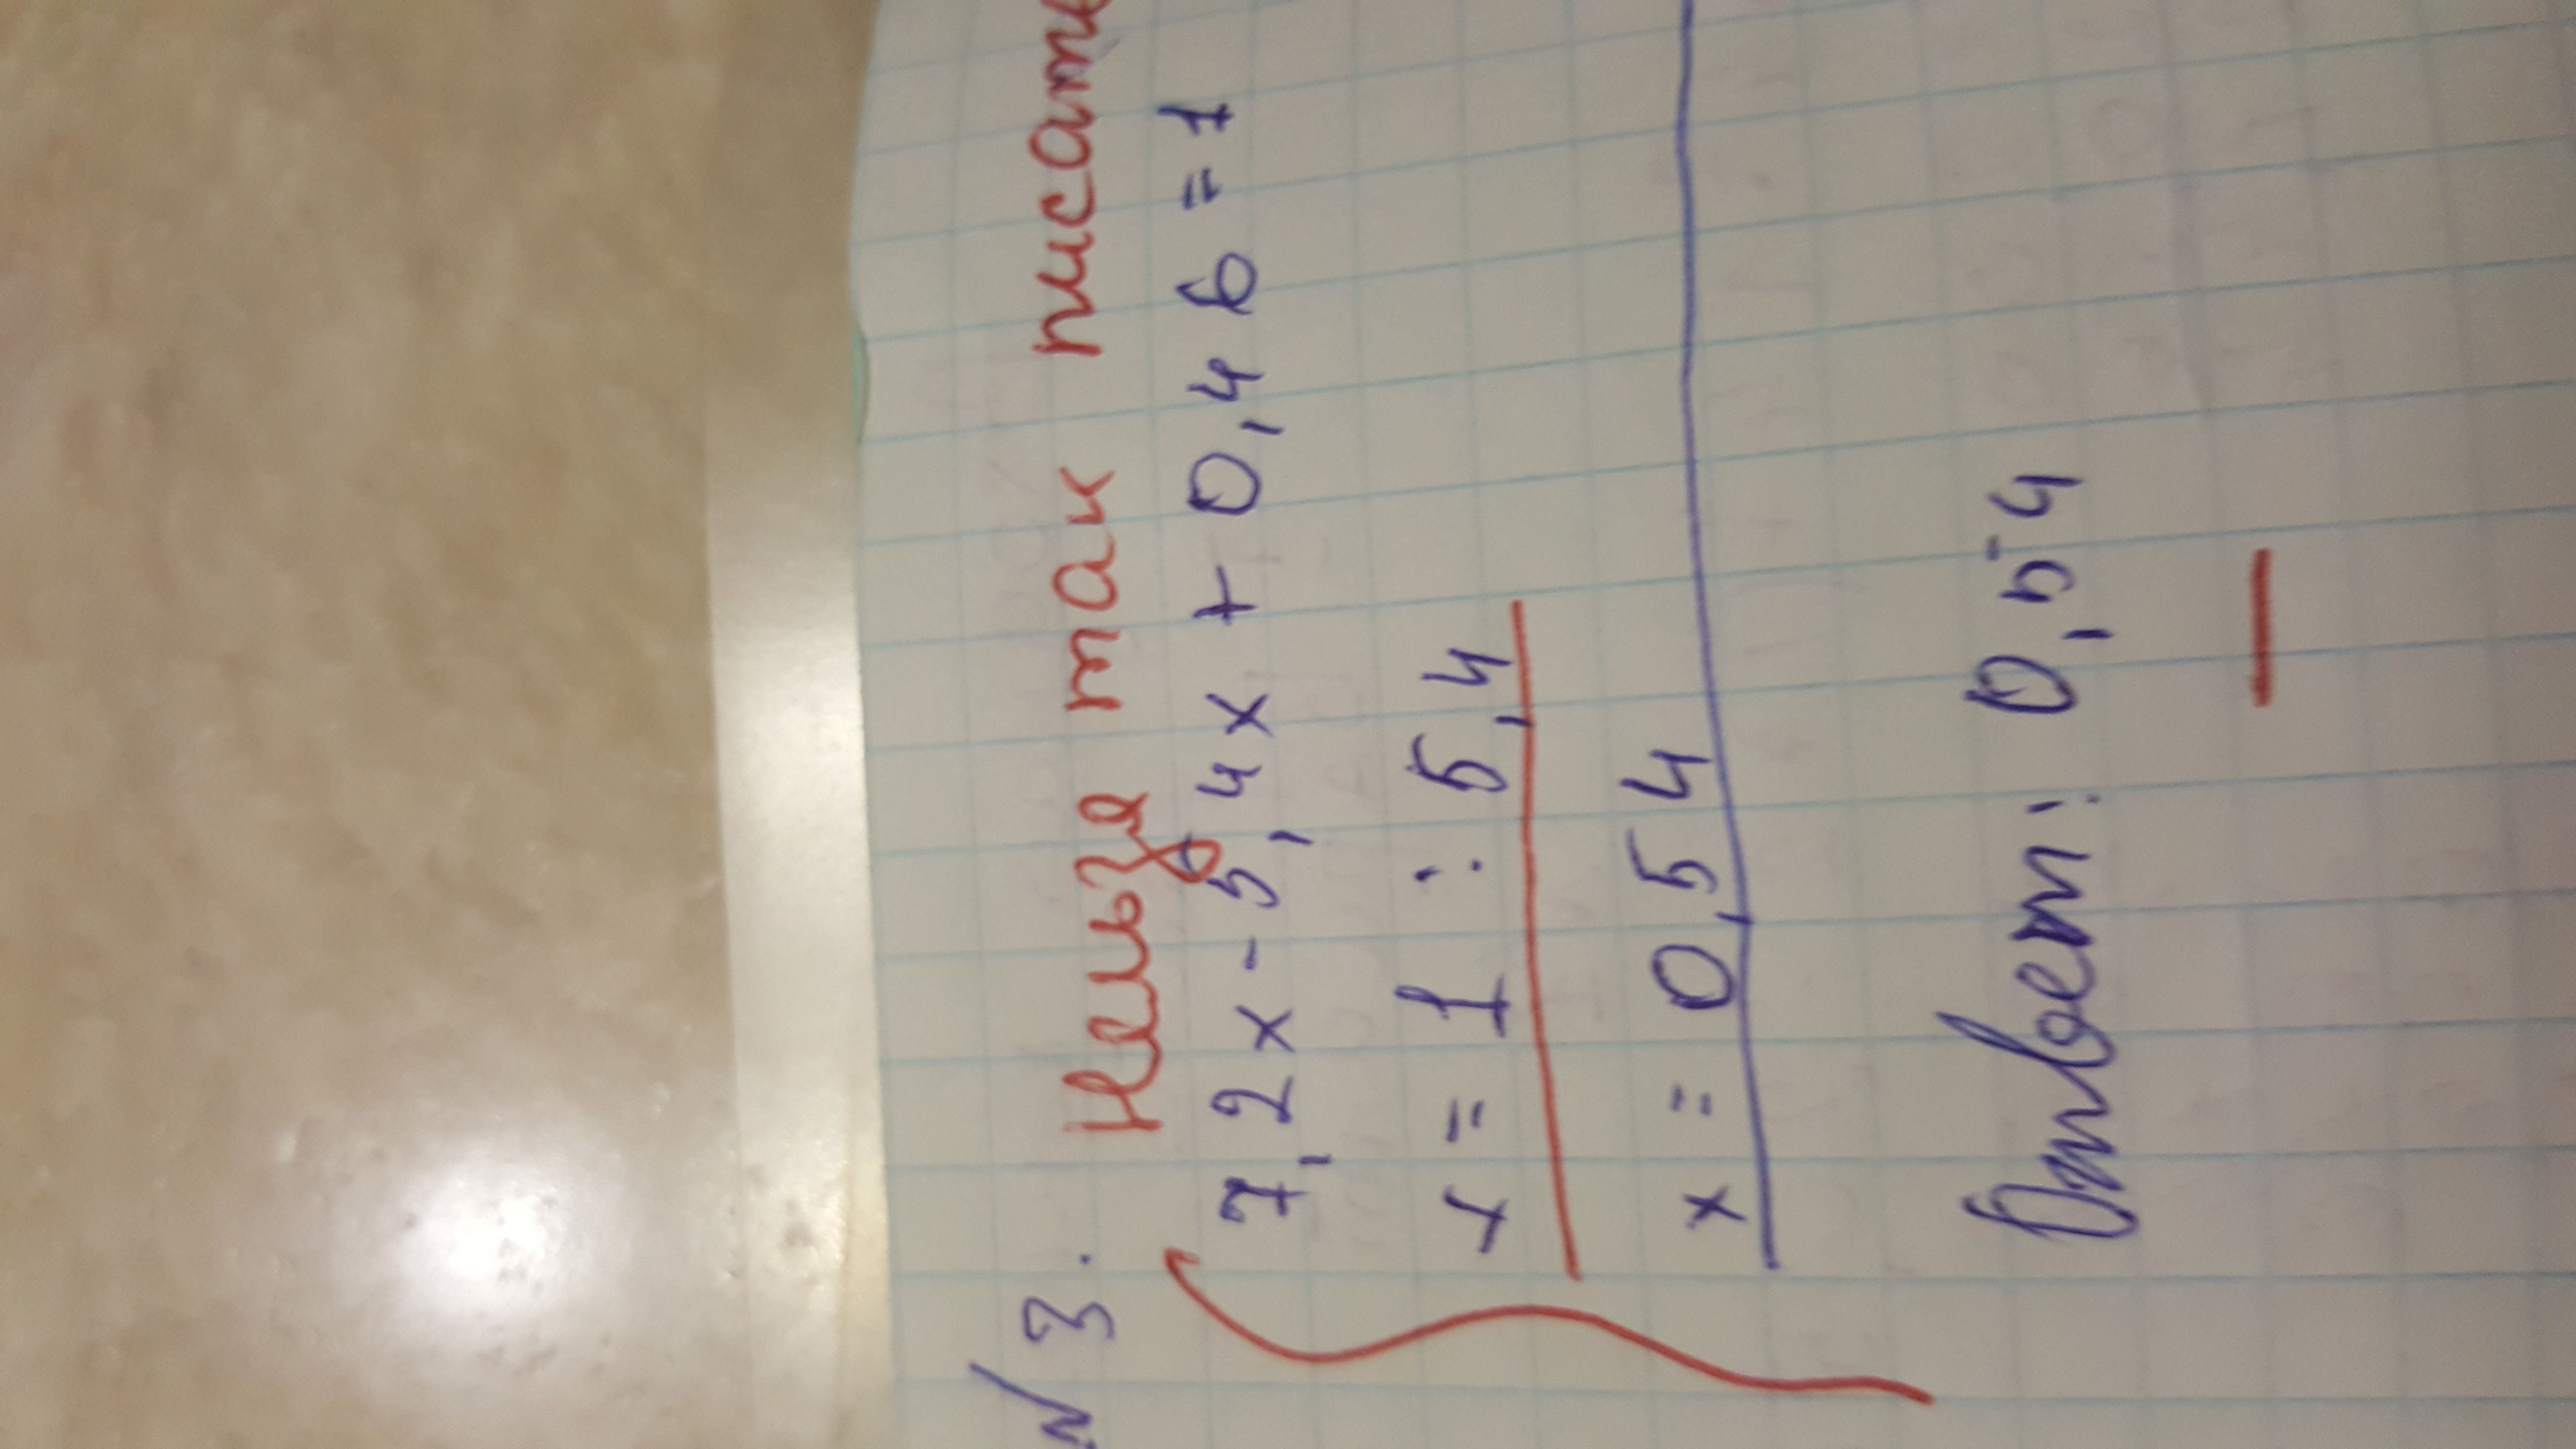 № 3. Нельзя так писать
7,2x - 5,4x + 0,46 = 1
x = 1 : 5,4
x = 0,54
Ответ: 0,54